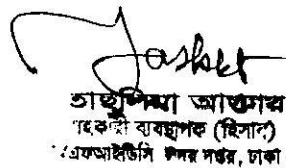 তাহলিমা আক্তার
সহকারী ব্যবস্থাপক (হিসাব)
এফআইডিসি সদর দপ্তর, ঢাকা